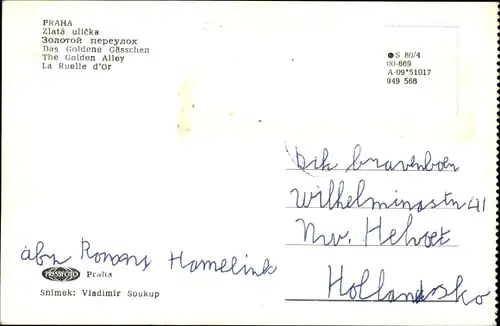 PRAHA
Zlatá ulička
Золотой переулок
Das Goldene Gässchen
The Golden Alley
La Ruelle d'Or
S 80/4
00-669
A-09*51017
949 566
Dik bravenboer
Wilhelminastr 41
Nw. Helvoet
Hollandsko
Hamelink
PRESSFOTO Praha
Snímek: Vladimír Soukup